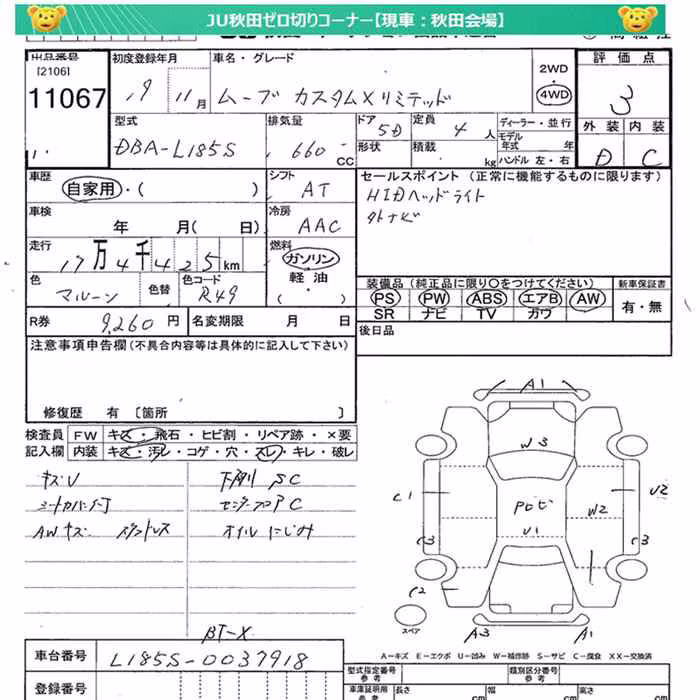 JU秋田ゼロ切りコーナー【現車:秋田会場】
出品番号
[2106]
11067
初度登録年月
19 11月
車名・グレード
ムーブ カスタムXリミテッド
2WD
・
4WD
評価点
3
外装 内装
D C
型式
DBA-L185S
排気量
660 CC
ドア
5D
形状
定員
4 人
積載
kg
ディーラー・並行
モデル
年式 年
ハンドル 左・右
車歴
自家用・( )
シフト
AT
セールスポイント(正常に機能するものに限ります)
HIDヘッドライト
外ナビ
車検
年 月( 日)
冷房
AAC
走行
17万4千425km
燃料
ガソリン
・
軽油
・
( )
色
マルーン
色替
色コード
R49
装備品(純正品に限り○をつけてください)
PS PW ABS エアB AW
SR ナビ TV ガワ
新車保証書
有・無
R券
9,260円
名変期限 月 日
後日品
注意事項申告欄(不具合内容等は具体的に記入して下さい)
修復歴 有 〔箇所 〕
検査員
記入欄
FW キズ・飛石・ヒビ割・リペア跡・×要
内装 キズ・汚レ・コゲ・穴・スレ・キレ・破レ
キズU
AWキズ
下廻り SC
オイルにじみ
A1
W3
C1
U2
W2
U1
C3
C3
C2
A3
A1
スペア
A-キズ E-エクボ U-凹み W-補修跡 S-サビ C-腐食 XX-交換済
BT-X
車台番号
L185S-0037918
登録番号
型式指定番号
参考
類別区分番号
参考
車庫証明用
参考
長さ
cm
幅
cm
高さ
cm